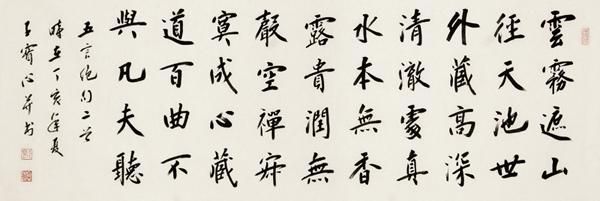 雲霧遮山
徑天池世
外藏高深
清澈處真
水本無香
露貴潤無
聲空禪寂
寞成心藏
道百曲不
與凡夫聽
五言絕句二首
時在丁亥年夏
并书